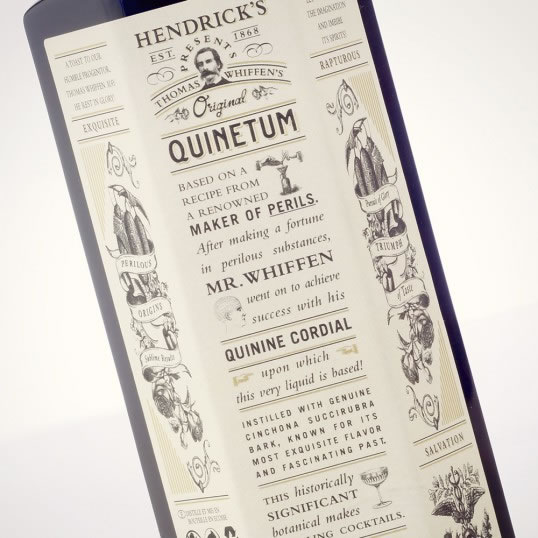 HENDRICK'S
EST. 1868
PRESENTS
THOMAS WHIFFEN'S
Original
QUINETUM
BASED ON A
RECIPE FROM
A RENOWNED
MAKER OF PERILS.
After making a fortune
in perilous substances,
MR. WHIFFEN
went on to achieve
success with his
QUININE CORDIAL
upon which
this very liquid is based!
INSTILLED WITH GENUINE
CINCHONA SUCCIRUBRA
BARK, KNOWN FOR ITS
MOST EXQUISITE FLAVOR
AND FASCINATING PAST.
THIS historically
SIGNIFICANT
botanical makes
COCKTAILS.
A TOAST TO OUR
HUMBLE PROGENITOR,
THOMAS WHIFFEN. MAY
HE REST IN GLORY
EXQUISITE
PERILOUS
ORIGINS
Sublime Results
THE IMAGINATION
AND IMBIBE
ITS SPIRITS!
RAPTUROUS
Portals of Glory
TRIUMPH
of Taste
SALVATION